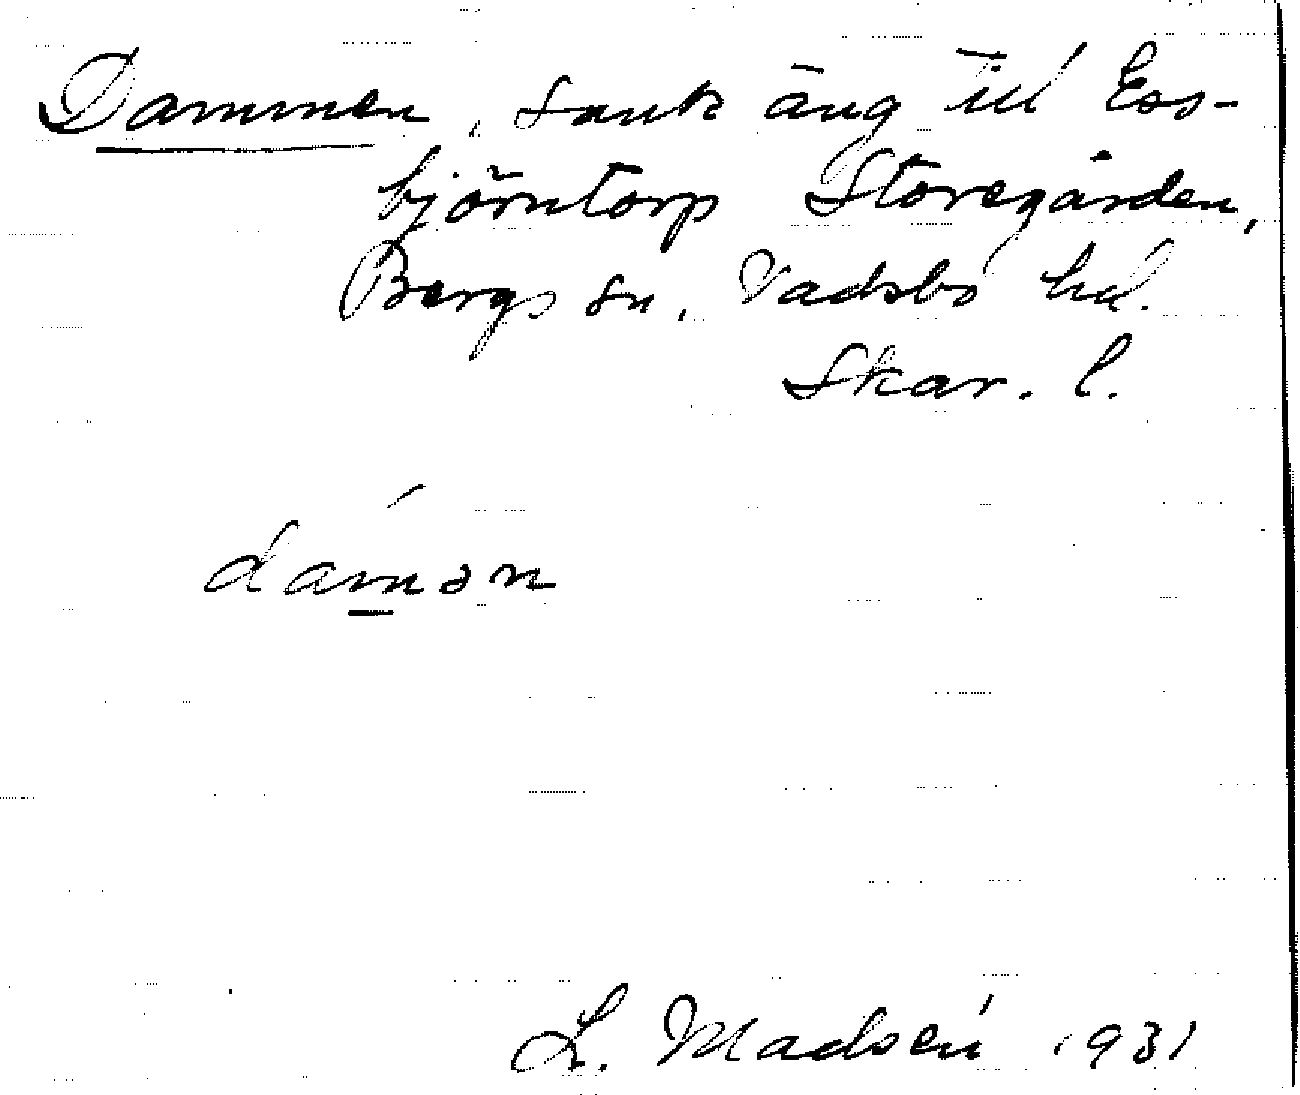 Dammen, sank äng till Ess-
björntorp Storegården,
Bergs sn, Vadsbo hd.
Skar. l.
dám̲ən
L. Madsén 1931